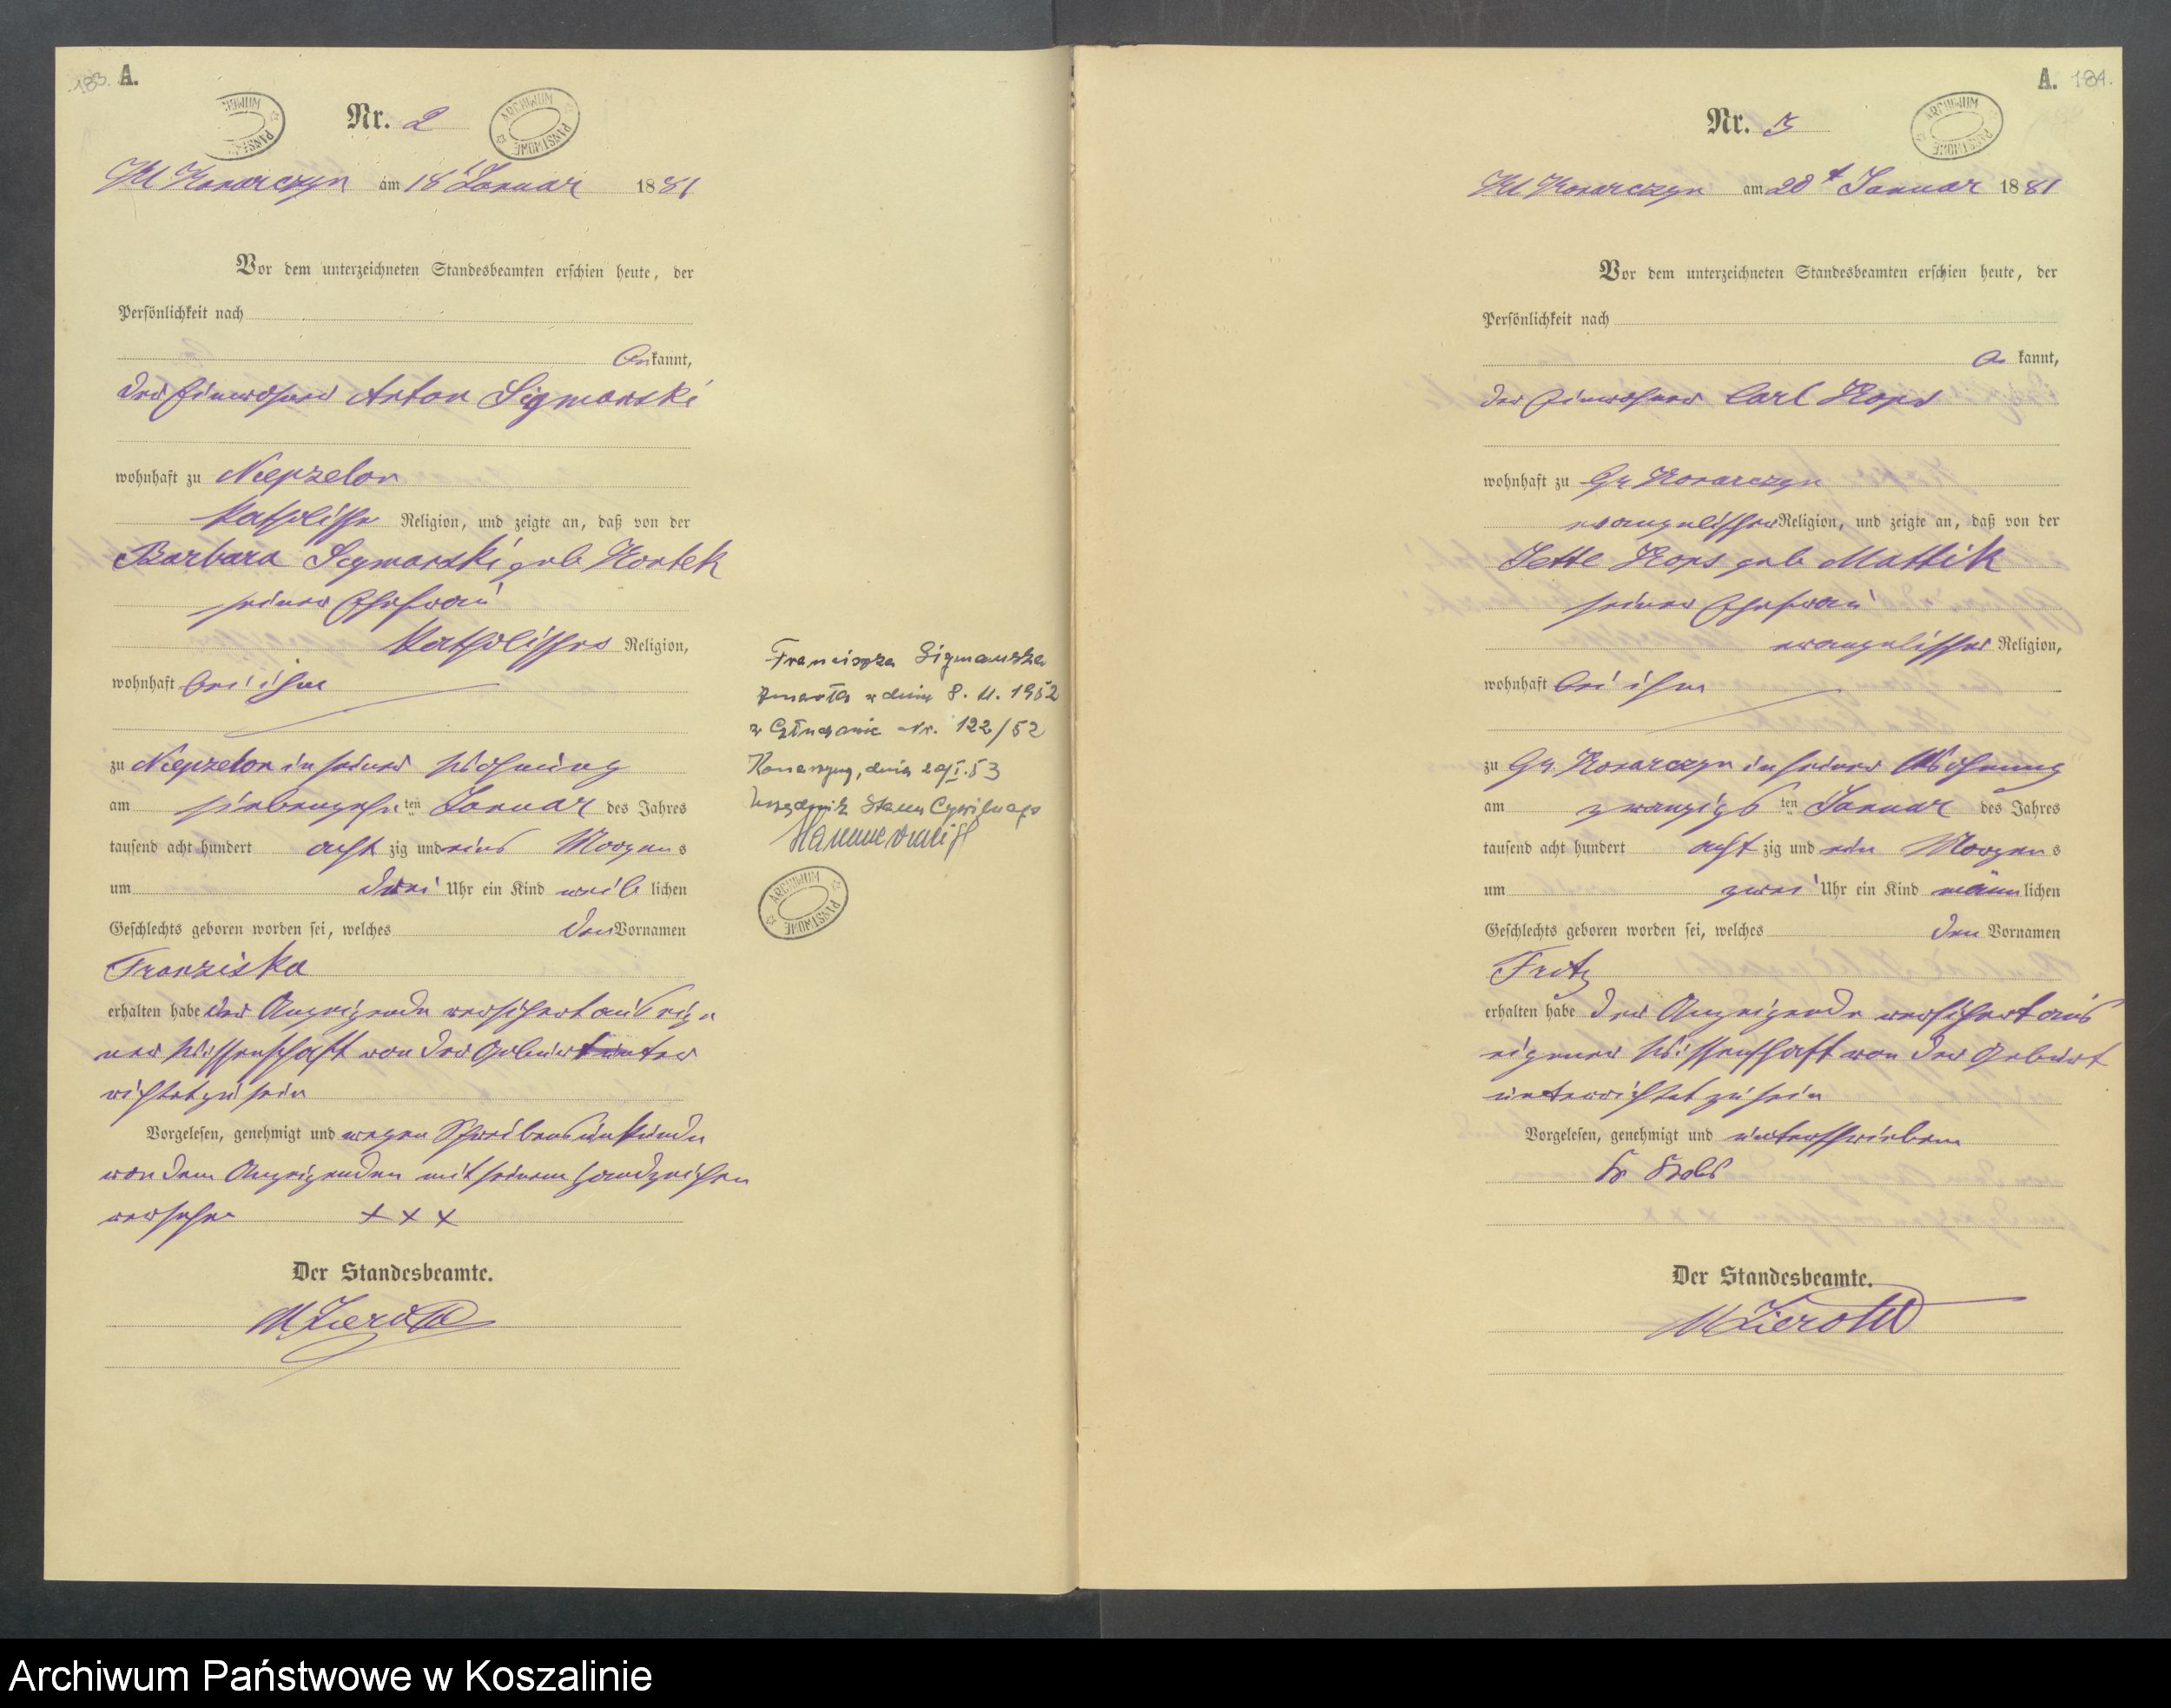 183. A.
Nr. 2
ARCHIWUM PAŃSTWOWE
Kl Konarczyn am 18 Januar 1881
Vor dem unterzeichneten Standesbeamten erschien heute, der
Persönlichkeit nach
bekannt,
der Einwohner Anton Sigmanski
wohnhaft zu Niepzelon
katholischer Religion, und zeigte an, daß von der
Barbara Sigmanski geb
seiner Ehefrau
katholischer Religion,
wohnhaft bei ihm
zu Niepzelon in seiner Wohnung
am siebenzehnten Januar des Jahres
tausend acht hundert acht zig und eins Morgens
um drei Uhr ein Kind weiblichen
Geschlechts geboren worden sei, welches den Vornamen
Franziska
erhalten habe der Anzeigende versichert aus eige
ner Wissenschaft von der Geburt unter
richtet zu sein
Vorgelesen, genehmigt und wegen Schreibensunkunde
von dem Anzeigenden mit seinem Handzeichen
versehen + + +
Der Standesbeamte.
M Zieroth
Franciszka Sigmańska
zmarła w dniu 8. 11. 1952
w Człuchowie Nr. 122/52
Konarzyny, dnia 29/I.53
Urzędnik Stanu Cywilnego
ARCHIWUM PAŃSTWOWE
A. 184.
Nr. 3
ARCHIWUM PAŃSTWOWE
Kl Konarczyn am 20t Januar 1881
Vor dem unterzeichneten Standesbeamten erschien heute, der
Persönlichkeit nach
be kannt,
der Einwohner Carl Kops
wohnhaft zu Gr Konarczyn
evangelischer Religion, und zeigte an, daß von der
Jette Kops geb Mattik
seiner Ehefrau
evangelischer Religion,
wohnhaft bei ihm
zu Gr. Konarczyn in seiner Wohnung
am zwanzigsten Januar des Jahres
tausend acht hundert acht zig und ein Morgens
um zwei Uhr ein Kind männlichen
Geschlechts geboren worden sei, welches den Vornamen
Fritz
erhalten habe der Anzeigende versichert aus
eigener Wissenschaft von der Geburt
unterrichtet zu sein
Vorgelesen, genehmigt und unterschrieben
Der Standesbeamte.
M Zieroth
Archiwum Państwowe w Koszalinie